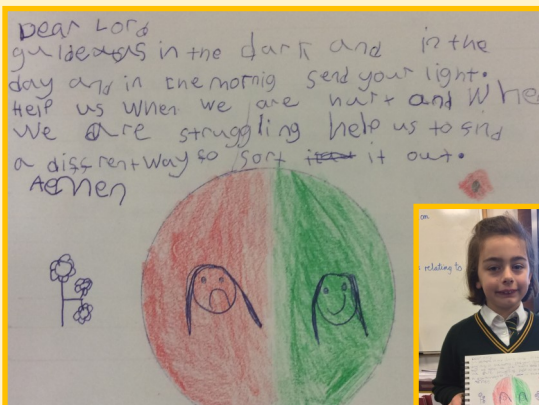 Dear Lord
guide us in the dark and in the
day and in the mornig send your light.
Help us when we are hurt and whe
we are struggling help us to find
a diffrent way to sort it out.
Aemen
on.
relating to